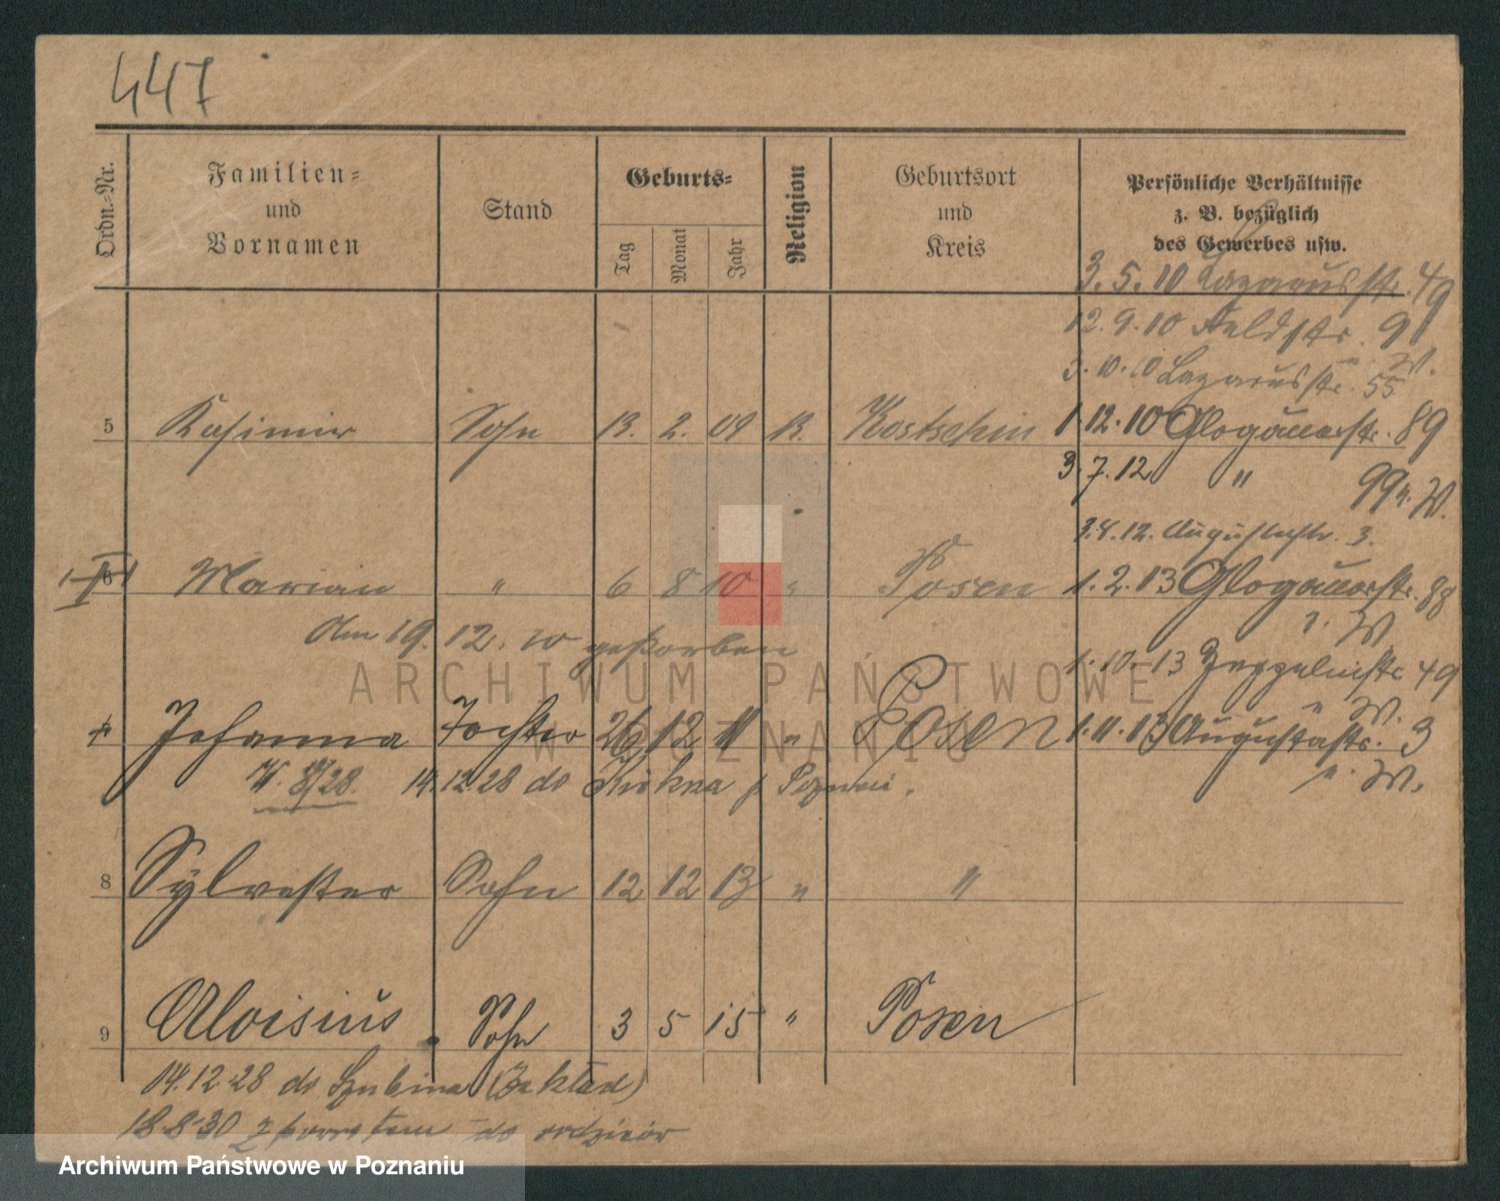 447
Ordn.-Nr.
Familien-
und
Vornamen
Stand
Geburts-
Tag
Monat
Jahr
Religion
Geburtsort
und
Kreis
Persönliche Verhältnisse
z. B. bezüglich
des Gewerbes usw.
3.5.10 Lazarusstr. 49
12.9.10 Feldstr. 9
3.10.10 Lazarusstr. 55
5 Kasimir Sohn 13. 2. 09 K. Kostschin 1.12.10 Glogauerstr. 89
3.7.12 " 99 n. W.
3.4.12. Augustastr. 3.
6 Marian " 6 8 10 " Posen 1.2.13 Glogauerstr. 88
n. W
Am 19. 12. 10 gestorben
1.10.13 Zeppelinstr. 49
n. W.
Johanna Tochter 26 12 11 " Posen 1.11.13 Augustastr. 3
n. W.
14.12.28 do p. Poznań.
8 Sylvester Sohn 12 12 13 " "
9 Aloisius Sohn 3 5 15 " Posen
14.12.28 do Szubina (Zakład)
18.8.30 z powrotem do rodziców
ARCHIWUM PAŃSTWOWE
W POZNANIU
Archiwum Państwowe w Poznaniu